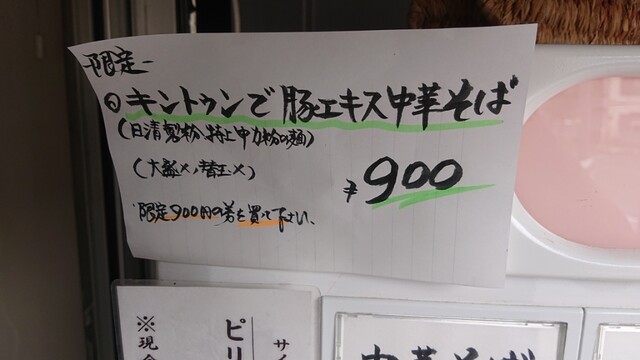 -限定-
①キントゥンで豚エキス中華そば
(日清製粉、特上中力粉の麺)
(大盛×、替玉×)
¥900
限定900円の券を買って下さい、
※現金
ピリ
サイ
中華そば